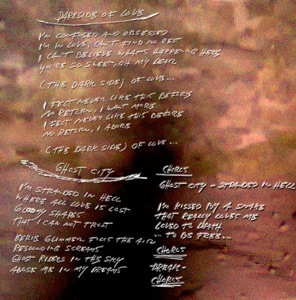 DARKSIDE OF LOVE
I'M CONFUSED AND OBSESSED
I'M IN LOVE, CAN'T FIND NO REST
I CAN'T BELIEVE WHAT'S HAPPENING HERE
YOU'RE SO SWEET, OH MY DEAR
(THE DARK SIDE) OF LOVE...
I FELT NEVER LIKE THIS BEFORE
NO RETURN, I WANT MORE
I FELT NEVER LIKE THIS BEFORE
NO RETURN, I ADORE
(THE DARK SIDE) OF LOVE...
GHOST CITY
I'M STRANDED IN HELL
WHERE ALL LOVE IS LOST
GLOOMY SHAPES
THAT I CAN NOT TRUST
EERIE GLIMMER FILLS THE AIR
RESOUNDING SCREAMS
GHOST RIDERS IN THE SKY
ABUSE ME IN MY DREAMS
CHORUS
GHOST CITY - STRANDED IN HELL
I'M KISSED BY A SNAKE
THAT REALLY LOVES ME
LOVED TO DEATH
... TO BE FREE...
CHORUS
BREAK
CHORUS